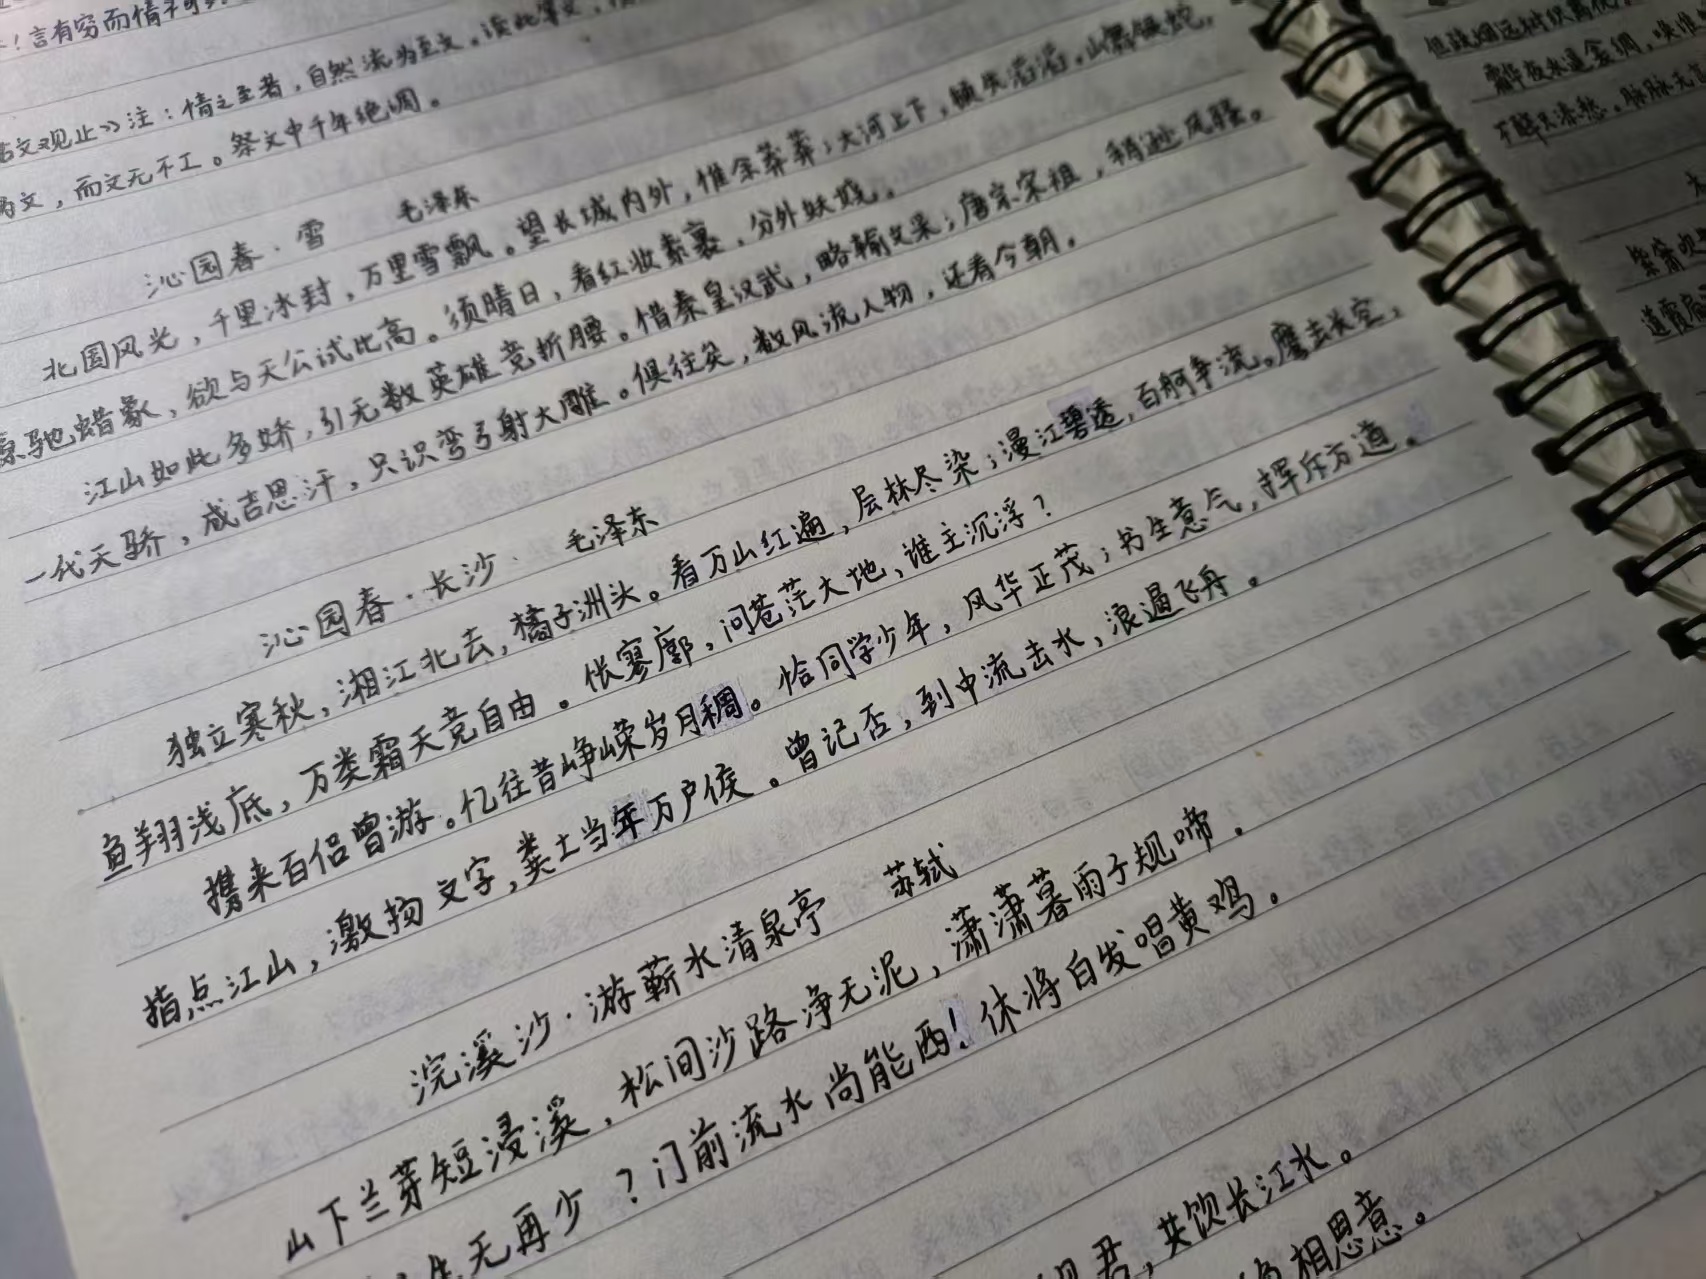 ！言有穷而情不可
古文观止》注：情之至者，自然流为至文。读此等文，
为文，而文无不工。祭文中千年绝调。
沁园春·雪 毛泽东
北国风光，千里冰封，万里雪飘。望长城内外，惟余莽莽；大河上下，顿失滔滔。山舞银蛇，
原驰蜡象，欲与天公试比高。须晴日，看红妆素裹，分外妖娆。
江山如此多娇，引无数英雄竞折腰。惜秦皇汉武，略输文采；唐宗宋祖，稍逊风骚。
一代天骄，成吉思汗，只识弯弓射大雕。俱往矣，数风流人物，还看今朝。
沁园春·长沙· 毛泽东
独立寒秋，湘江北去，橘子洲头。看万山红遍，层林尽染；漫江碧透，百舸争流。鹰击长空，
鱼翔浅底，万类霜天竞自由。怅寥廓，问苍茫大地，谁主沉浮？
携来百侣曾游。忆往昔峥嵘岁月稠。恰同学少年，风华正茂；书生意气，挥斥方遒。
指点江山，激扬文字，粪土当年万户侯。曾记否，到中流击水，浪遏飞舟。
浣溪沙·游蕲水清泉寺 苏轼
山下兰芽短浸溪，松间沙路净无泥，潇潇暮雨子规啼。
生无再少？门前流水尚能西！休将白发唱黄鸡。
君，共饮长江水。
相思意。